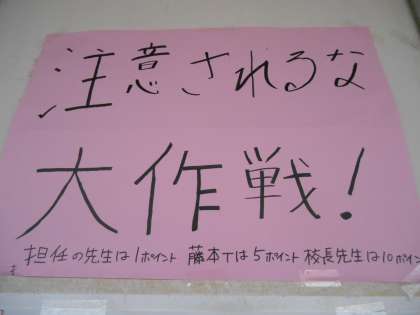 注意されるな
大作戦!
担任の先生は1ポイント 藤本Tは5ポイント 校長先生は10ポイン